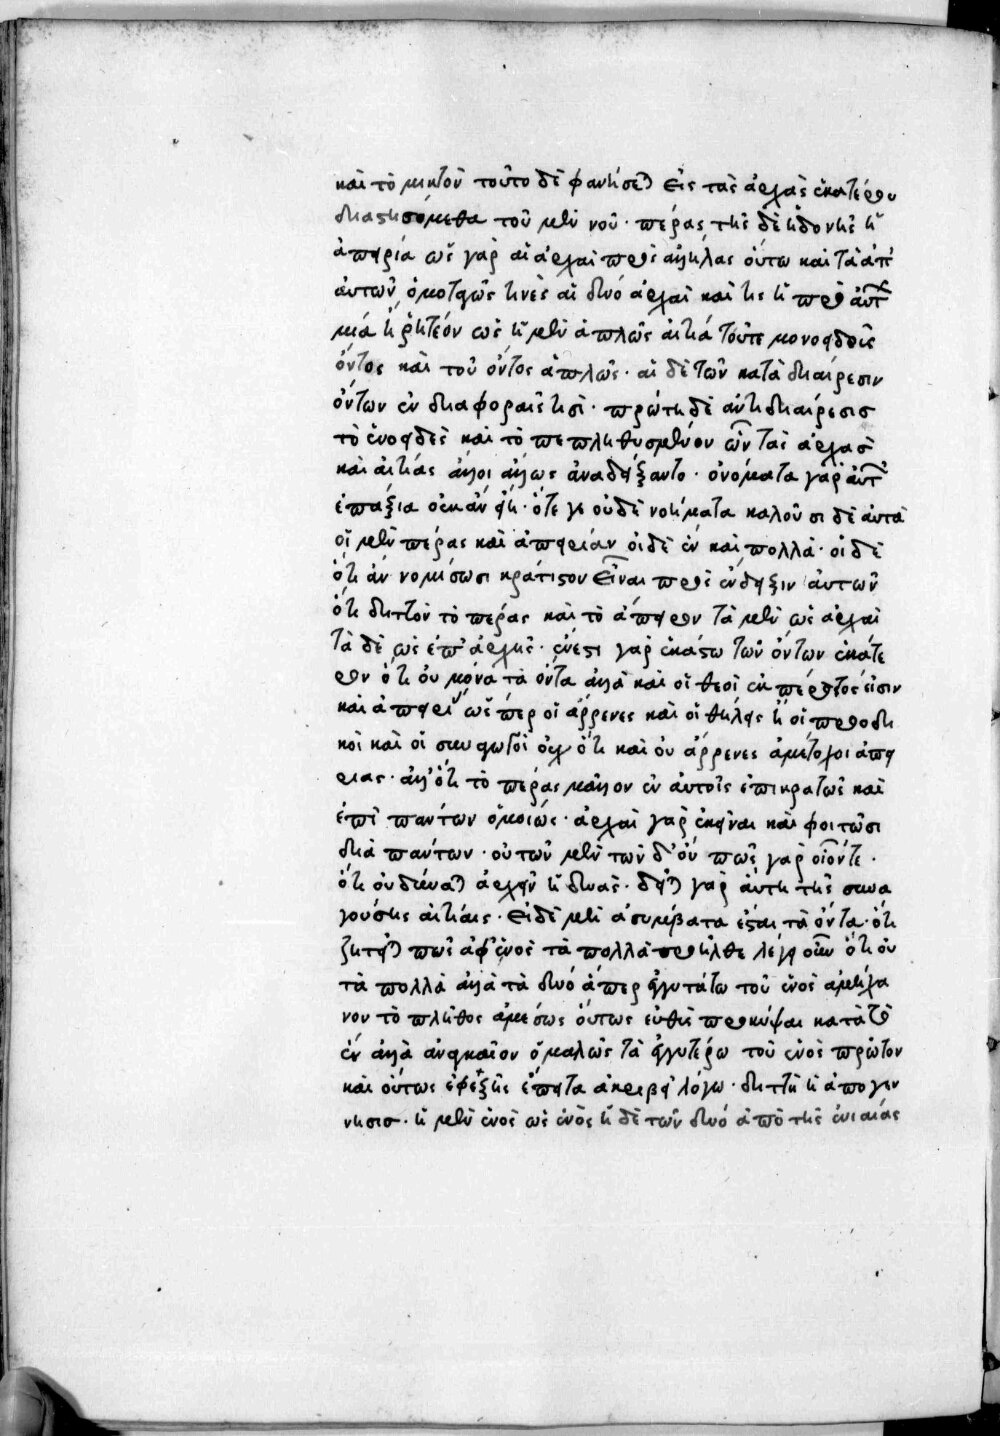 καὶ τὸ μικτὸν τοῦτο δὲ φανήσεται εἰς τὰς ἀρχὰς ἑκατέρου
διαστησόμεθα τοῦ μὲν νοῦ · πέρας τῆς δὲ ἡδονῆς ἡ
ἀπειρία ὡς γὰρ αἱ ἀρχαὶ πρὸς ἀλλήλας οὕτω καὶ τὰ ἀπ'
αὐτῶν ὁμοταγῶς τινὲς αἱ δύο ἀρχαὶ καὶ τίς ἡ πρὸ αὐτῶν
μιά ἢ ῥητέον ὡς ἡ μὲν ἁπλῶς αἰτιά τοῦτε μονοειδοῦς
ὄντος καὶ τοῦ ὄντος ἁπλῶς · αἱ δὲ τῶν κατὰ διαίρεσιν
ὄντων ἐν διαφοραῖς τισὶ · πρώτη δὲ ἀντιδιαίρεσις
τὸ ἑνοειδὲς καὶ τὸ πεπληθυσμένον ὧν τὰς ἀρχὰς
καὶ αἰτίας ἄλλοι ἄλλως ἀναδείξαντο · ὀνόματα γὰρ αὐτῶν
ἐπάξια οὐκ ἂν εἴη · ὅτε γε οὐδὲ νοήματα καλοῦσι δὲ αὐτὰ
οἱ μὲν πέρας καὶ ἀπειρίαν οἱ δὲ ἓν καὶ πολλὰ · οἱ δὲ
ὅτι ἂν νομίσωσι κράτιστον εἶναι πρὸς ἔνδειξιν αὐτῶν
ὅτι διττὸν τὸ πέρας καὶ τὸ ἄπειρον τὰ μὲν ὡς ἀρχαὶ
τὰ δὲ ὡς ἐπ' ἀρχῆς · ἔνεστι γὰρ ἑκάστω τῶν ὄντων ἑκάτε
ρον ὅτι οὐ μόνα τὰ ὄντα ἀλλὰ καὶ οἱ θεοὶ ἐκ πέρατός εἰσιν
καὶ ἀπειρίας ὥς περ οἱ ἄρρενες καὶ οἱ θήλεις ἢ οἱ προοδι
κοὶ καὶ οἱ συναγωγοὶ οὐχ ὅτι καὶ οὐ ἄρρενες ἀμέτοχοι ἀπει
ρίας · ἀλλ' ὅτι τὸ πέρας μᾶλλον ἐν αὐτοῖς ἐπικρατῶς καὶ
ἐπὶ πάντων ὁμοίως · ἀρχαὶ γὰρ ἐκεῖναι καὶ φοιτῶσι
διὰ πάντων · οὐ τῶν μὲν τῶν δ' οὐ πῶς γὰρ οἷόντε ·
ὅτι οὐ δύναται ἀρχεῖν ἡ δυὰς · δεῖται γὰρ αὕτη τῆς συνα
γούσης αἰτίας · εἰ δὲ μὴ ἀσυμβατα ἔσται τὰ ὄντα · ὅτι
ζητεῖται πῶς ἀφ' ἑνὸς τὰ πολλὰ προῆλθε λέγει οὖν ὅτι οὐ
τὰ πολλὰ ἀλλὰ τὰ δύο ἅπερ ἐγγυτάτω τοῦ ἑνὸς ἀμήχα
νον τὸ πλῆθος ἀμέσως οὕτως εὐθὺς προκύψαι κατὰ τὸ
ἓν ἀλλὰ ἀναγκαῖον ὁμαλῶς τὰ ἐγγυτέρω τοῦ ἑνὸς πρῶτον
καὶ οὕτως ἐφεξῆς ἔπειτα ἀκριβεῖ λόγω · διττὴ ἡ ἀπογεν
νησισ · ἡ μὲν ἑνὸς ὡς ἑνὸς ἡ δὲ τῶν δυό ἀπὸ τῆς ἑνιαίας